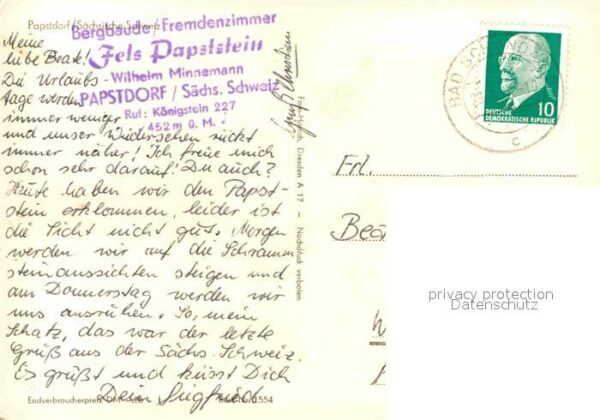 Papstdorf/Sächsische Schweiz
Bergbaude/Fremdenzimmer
Fels Papststein
- Wilhelm Minnemann
PAPSTDORF / Sächs. Schweiz
Ruf: Königstein 227
452 m ü. M.
Meine
liebe Beate!
Die Urlaubs-
tage werden
immer weniger
und unser Wiedersehen rückt
immer näher! Ich freue mich
schon sehr darauf! Du auch?
Heute haben wir den Papst-
stein erklommen, leider ist
die Sicht nicht gut. Morgen
werden wir auf die Schramm
steinaussichten steigen und
am Donnerstag werden wir
uns ausruhen. So, mein
Schatz, das war der letzte
Gruß aus der Sächs. Schweiz.
Es grüßt und küsst Dich
Dein Siegfried
Endverbraucherpreis DM
1554
Dresden A 17 - Nachdruck verboten
BAD
C
10
DEUTSCHE
DEMOKRATISCHE REPUBLIK
Frl.
privacy protection
Datenschutz